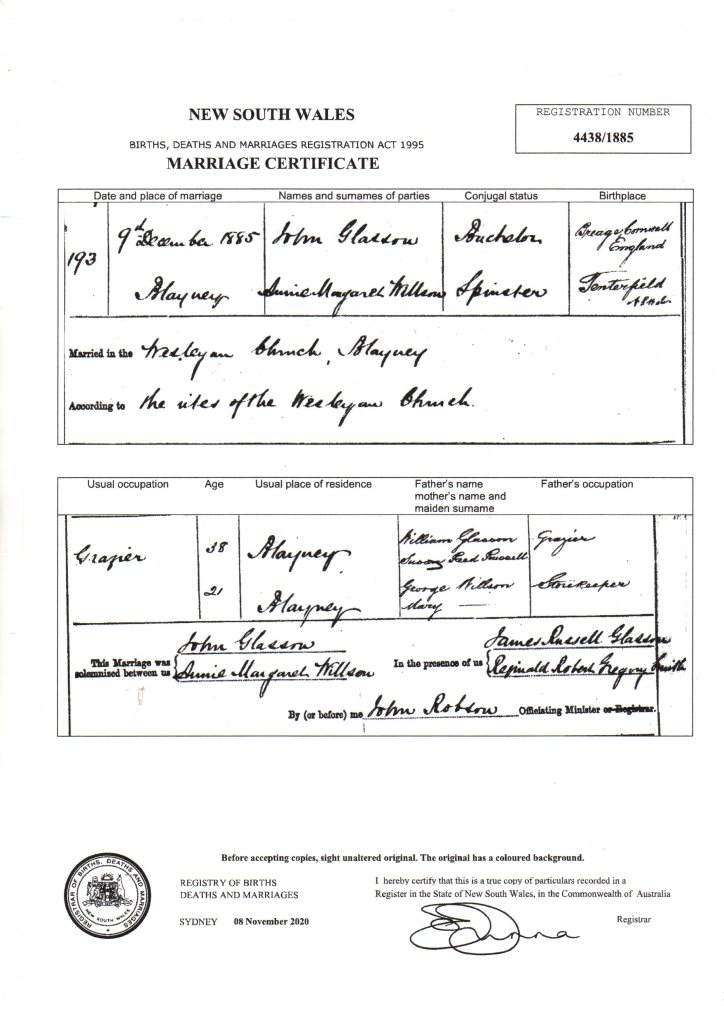 NEW SOUTH WALES
REGISTRATION NUMBER
4438/1885
BIRTHS, DEATHS AND MARRIAGES REGISTRATION ACT 1995
MARRIAGE CERTIFICATE
Date and place of marriage Names and surnames of parties Conjugal status Birthplace
193 9th December 1885 John Glasson Bachelor Breage, Cornwall England
Blayney Annie Margaret Willson Spinster Tenterfield
Married in the Wesleyan Church, Blayney
According to the rites of the Wesleyan Church.
Usual occupation Age Usual place of residence Father's name mother's name and maiden surname Father's occupation
Grazier 38 Blayney William Glasson Grazier
Susan Reed Russell
21 Blayney George Willson Storekeeper
Mary —
This Marriage was solemnized between us John Glasson
Annie Margaret Willson
In the presence of us James Russell Glasson
Reginald Robert Gregory Smith
By (or before) me John Robson Officiating Minister or Registrar.
Before accepting copies, sight unaltered original. The original has a coloured background.
REGISTRY OF BIRTHS
DEATHS AND MARRIAGES
I hereby certify that this is a true copy of particulars recorded in a
Register in the State of New South Wales, in the Commonwealth of Australia
SYDNEY 08 November 2020
Registrar
REGISTRAR OF BIRTHS, DEATHS AND MARRIAGES
NEW SOUTH WALES